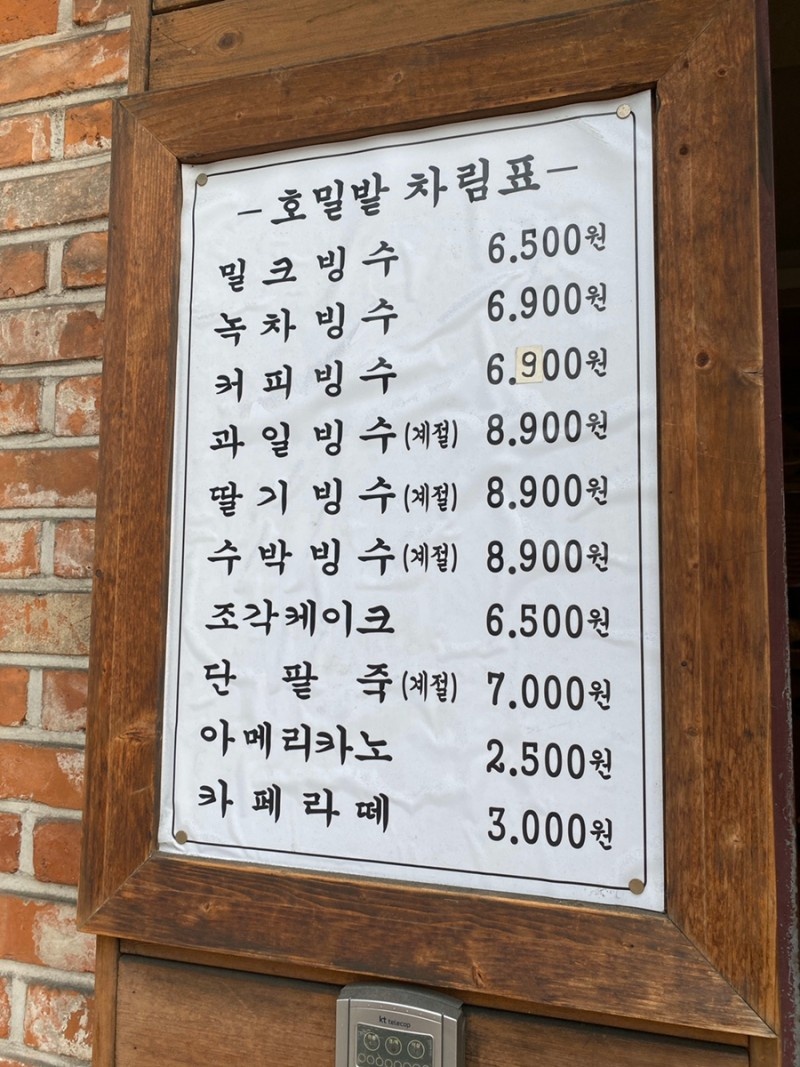 -호밀밭 차림표-
밀크빙수 6.500원
녹차빙수 6.900원
커피빙수 6.900원
과일빙수(계절) 8.900원
딸기빙수(계절) 8.900원
수박빙수(계절) 8.900원
조각케이크 6.500원
단팥죽(계절) 7.000원
아메리카노 2.500원
카페라떼 3.000원
kt telecop